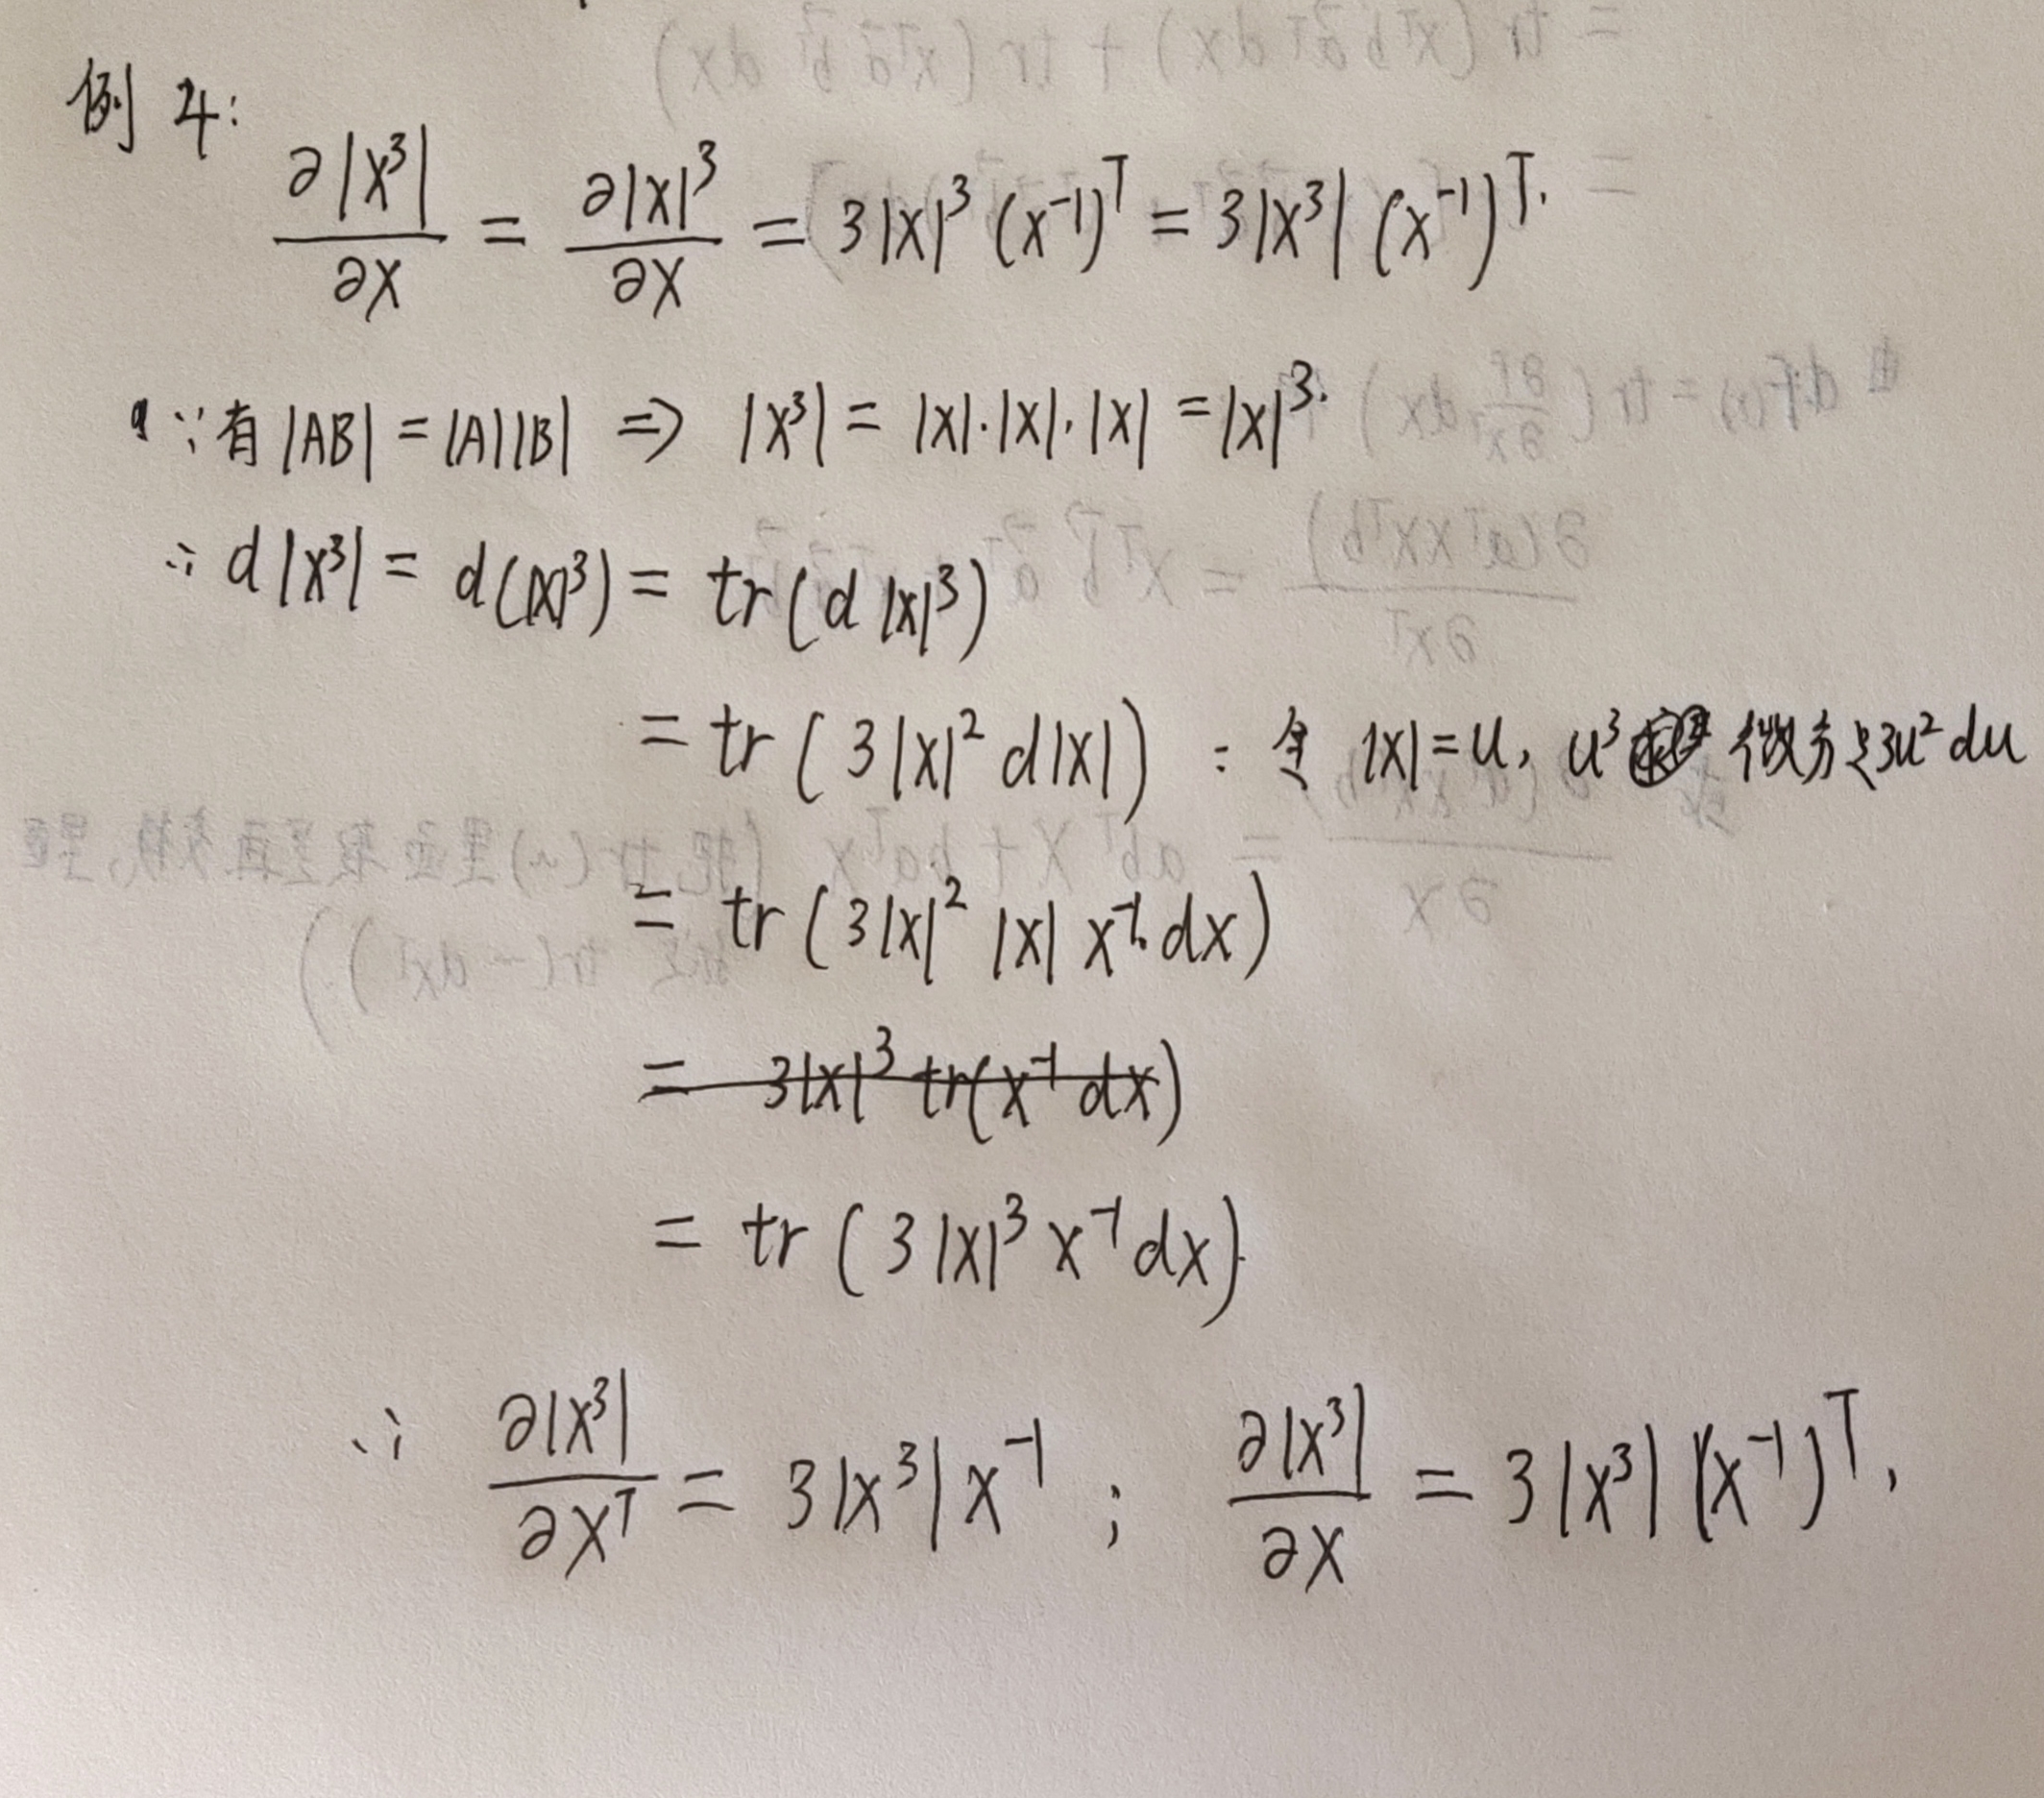 例 4:
∂|X³|/∂X = ∂|X|³/∂X = 3|X|³ (X⁻¹)ᵀ = 3|X³| (X⁻¹)ᵀ.
∵有 |AB| = |A||B| ⇒ |X³| = |X|·|X|·|X| = |X|³.
∴ d|X³| = d(|X|³) = tr(d |X|³)
= tr(3|X|² d|X|) : 令 |X| = u, u³ 微分是3u² du
= tr(3|X|² |X| X⁻¹ dX)
= 3|X|³ tr(X⁻¹ dX)
= tr(3|X|³ X⁻¹ dX)
∴ ∂|X³|/∂Xᵀ = 3|X³| X⁻¹ ; ∂|X³|/∂X = 3|X³| (X⁻¹)ᵀ.